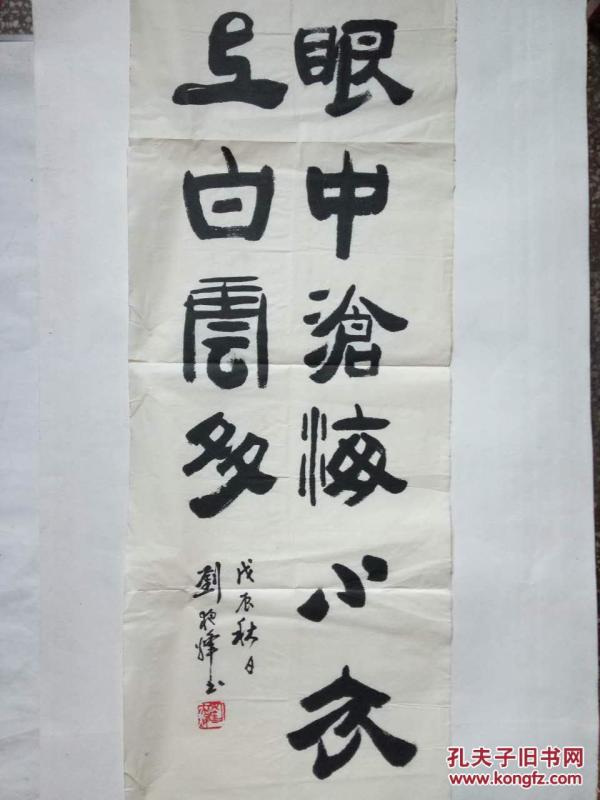 眼中滄海小衣
上白雲多
戊辰秋月
劉艳烽书
孔夫子旧书网
www.kongfz.com